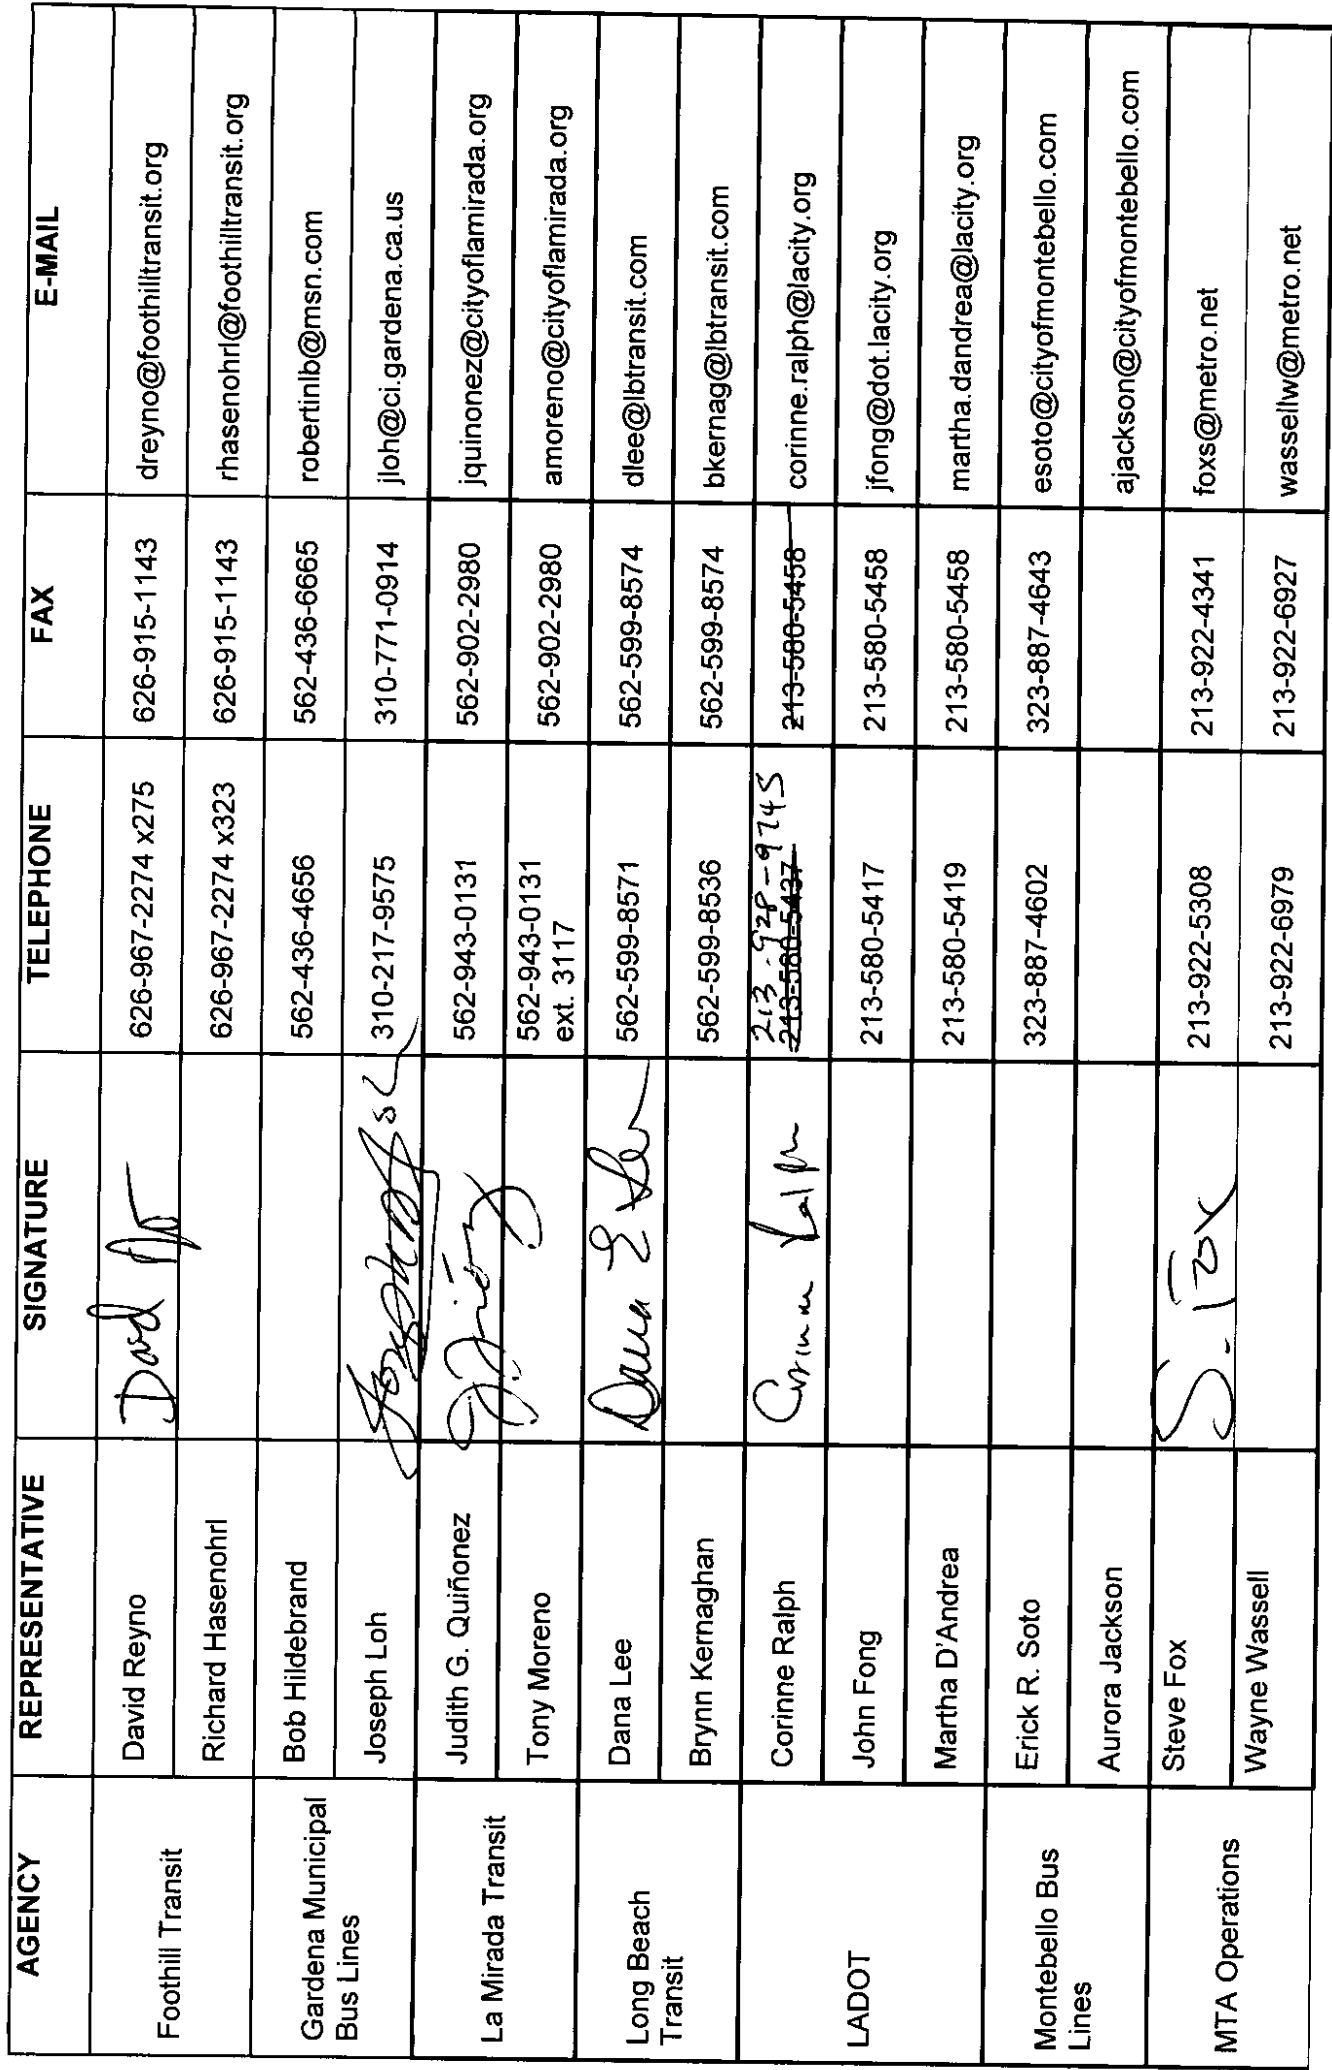 AGENCY REPRESENTATIVE SIGNATURE TELEPHONE FAX E-MAIL
Foothill Transit
David Reyno David 626-967-2274 x275 626-915-1143 dreyno@foothilltransit.org
Richard Hasenohrl 626-967-2274 x323 626-915-1143 rhasenohrl@foothilltransit.org
Gardena Municipal
Bus Lines
Bob Hildebrand 562-436-4656 562-436-6665 robertinlb@msn.com
Joseph Loh Joseph 310-217-9575 310-771-0914 jloh@ci.gardena.ca.us
La Mirada Transit
Judith G. Quiñonez 562-943-0131 562-902-2980 jquinonez@cityoflamirada.org
Tony Moreno 562-943-0131 562-902-2980 amoreno@cityoflamirada.org
ext. 3117
Long Beach
Transit
Dana Lee Dana E Lee 562-599-8571 562-599-8574 dlee@lbtransit.com
Brynn Kernaghan 562-599-8536 562-599-8574 bkernag@lbtransit.com
LADOT
213-928-9745
Corinne Ralph Corinne Ralph 213-580-5437 213-580-5458 corinne.ralph@lacity.org
John Fong 213-580-5417 213-580-5458 jfong@dot.lacity.org
Martha D'Andrea 213-580-5419 213-580-5458 martha.dandrea@lacity.org
Montebello Bus
Lines
Erick R. Soto 323-887-4602 323-887-4643 esoto@cityofmontebello.com
Aurora Jackson ajackson@cityofmontebello.com
MTA Operations
Steve Fox S. Fox 213-922-5308 213-922-4341 foxs@metro.net
Wayne Wassell 213-922-6979 213-922-6927 wassellw@metro.net